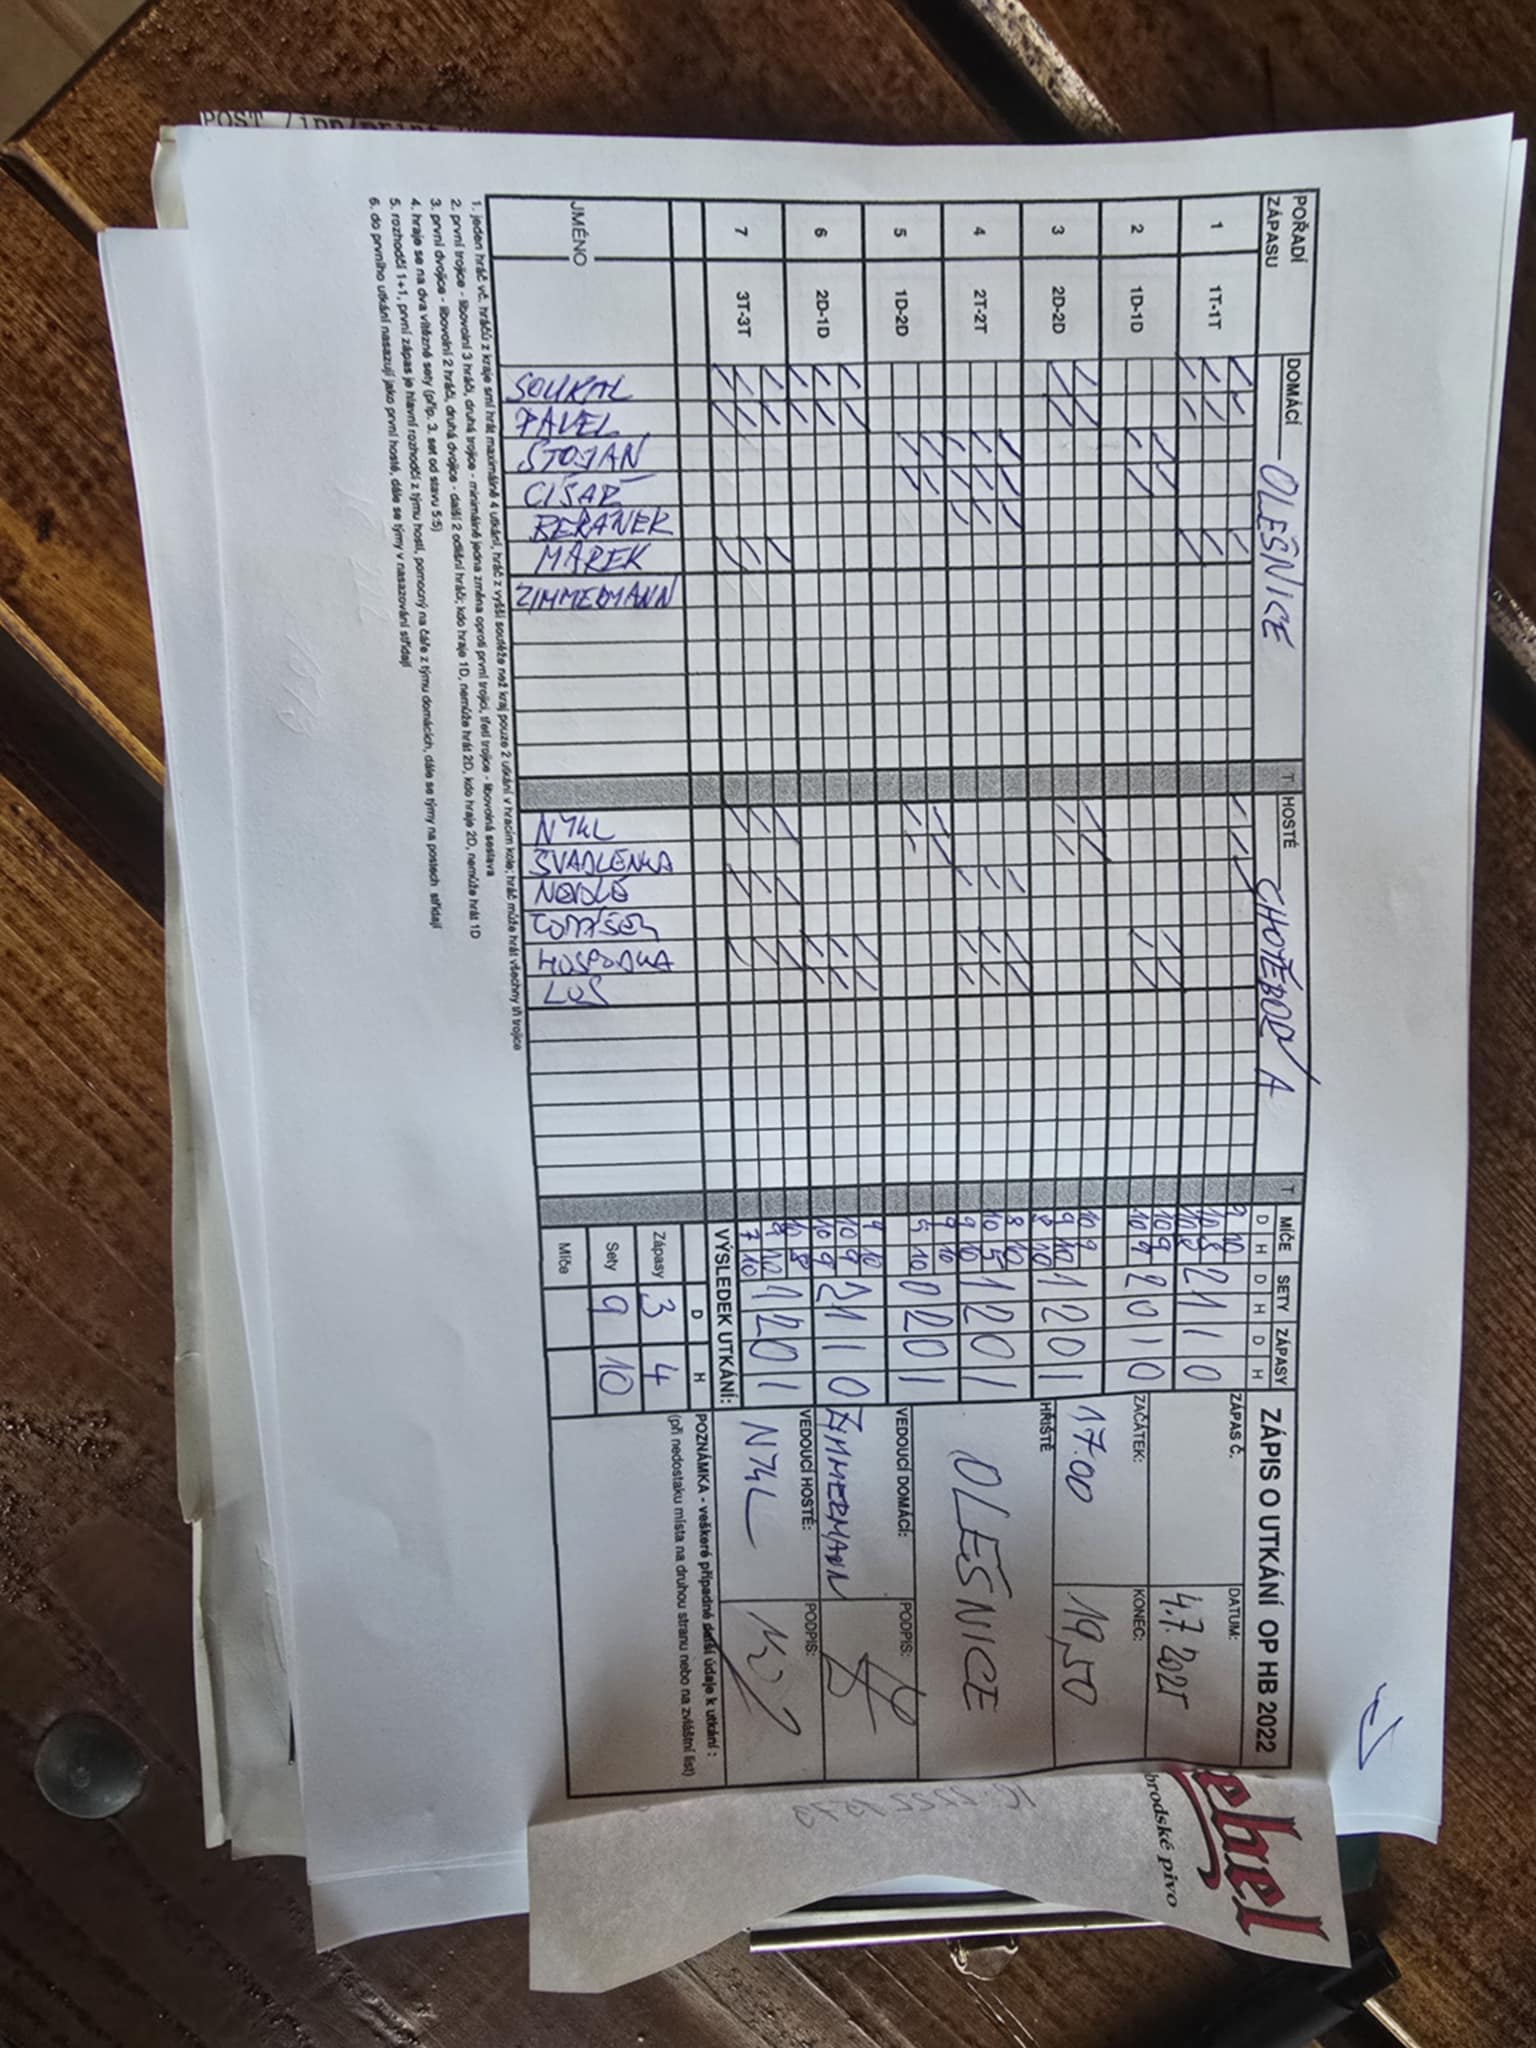 POŘADÍ ZÁPASU
DOMÁCÍ OLEŠNICE
T
HOSTÉ CHOTĚBOŘ A
T
MÍČE SETY ZÁPASY
D H D H D H
1 1T-1T 9 10 2 1 1 0
10 8
10 8
2 1D-1D 10 9 2 0 1 0
10 9
3 2D-2D 10 9 1 2 0 1
9 10
8 10
4 2T-2T 8 10 1 2 0 1
10 5
9 10
5 1D-2D 9 10 0 2 0 1
9 10
6 2D-1D 9 10 2 1 1 0
10 9
10 9
7 3T-3T 10 8 1 2 0 1
9 10
7 10
JMÉNO
SOUKAL
PAVEL
STOJAN
CÍSAŘ
BERÁNEK
MAREK
ZIMMERMANN
NYKL
ŠVADLENKA
HOSPODKA
VÝSLEDEK UTKÁNÍ:
D H
Zápasy 3 4
Sety 9 10
Míče
ZÁPIS O UTKÁNÍ OP HB 2022
ZÁPAS Č. DATUM: 4.7.2025
ZAČÁTEK: 17.00 KONEC: 19,50
HŘIŠTĚ
OLEŠNICE
VEDOUCÍ DOMÁCÍ: PODPIS:
ZIMMERMANN
VEDOUCÍ HOSTÉ: PODPIS:
NYKL
POZNÁMKA - veškeré případné další údaje k utkání :
(při nedostaku místa na druhou stranu nebo na zvláštní list)
1. jeden hráč vč. hráčů z kraje smí hrát maximálně 4 utkání, hráč z vyšší soutěže než kraj pouze 2 utkání v hracím kole; hráč může hrát všechny tři trojice
2. první trojice - libovolní 3 hráči, druhá trojice - minimálně jedna změna oproti první trojici, třetí trojice - libovolná sestava
3. první dvojice - libovolní 2 hráči, druhá dvojice - další 2 odlišní hráči; kdo hraje 1D, nemůže hrát 2D, kdo hraje 2D, nemůže hrát 1D
4. hraje se na dva vítězné sety (příp. 3. set od stavu 5:5)
5. rozhodčí 1+1, první zápas je hlavní rozhodčí z týmu hostí, pomocný na čáře z týmu domácích, dále se týmy na postech střídají
6. do prvního utkání nasazují jako první hosté, dále se týmy v nasazování střídají
ebel
brodské pivo